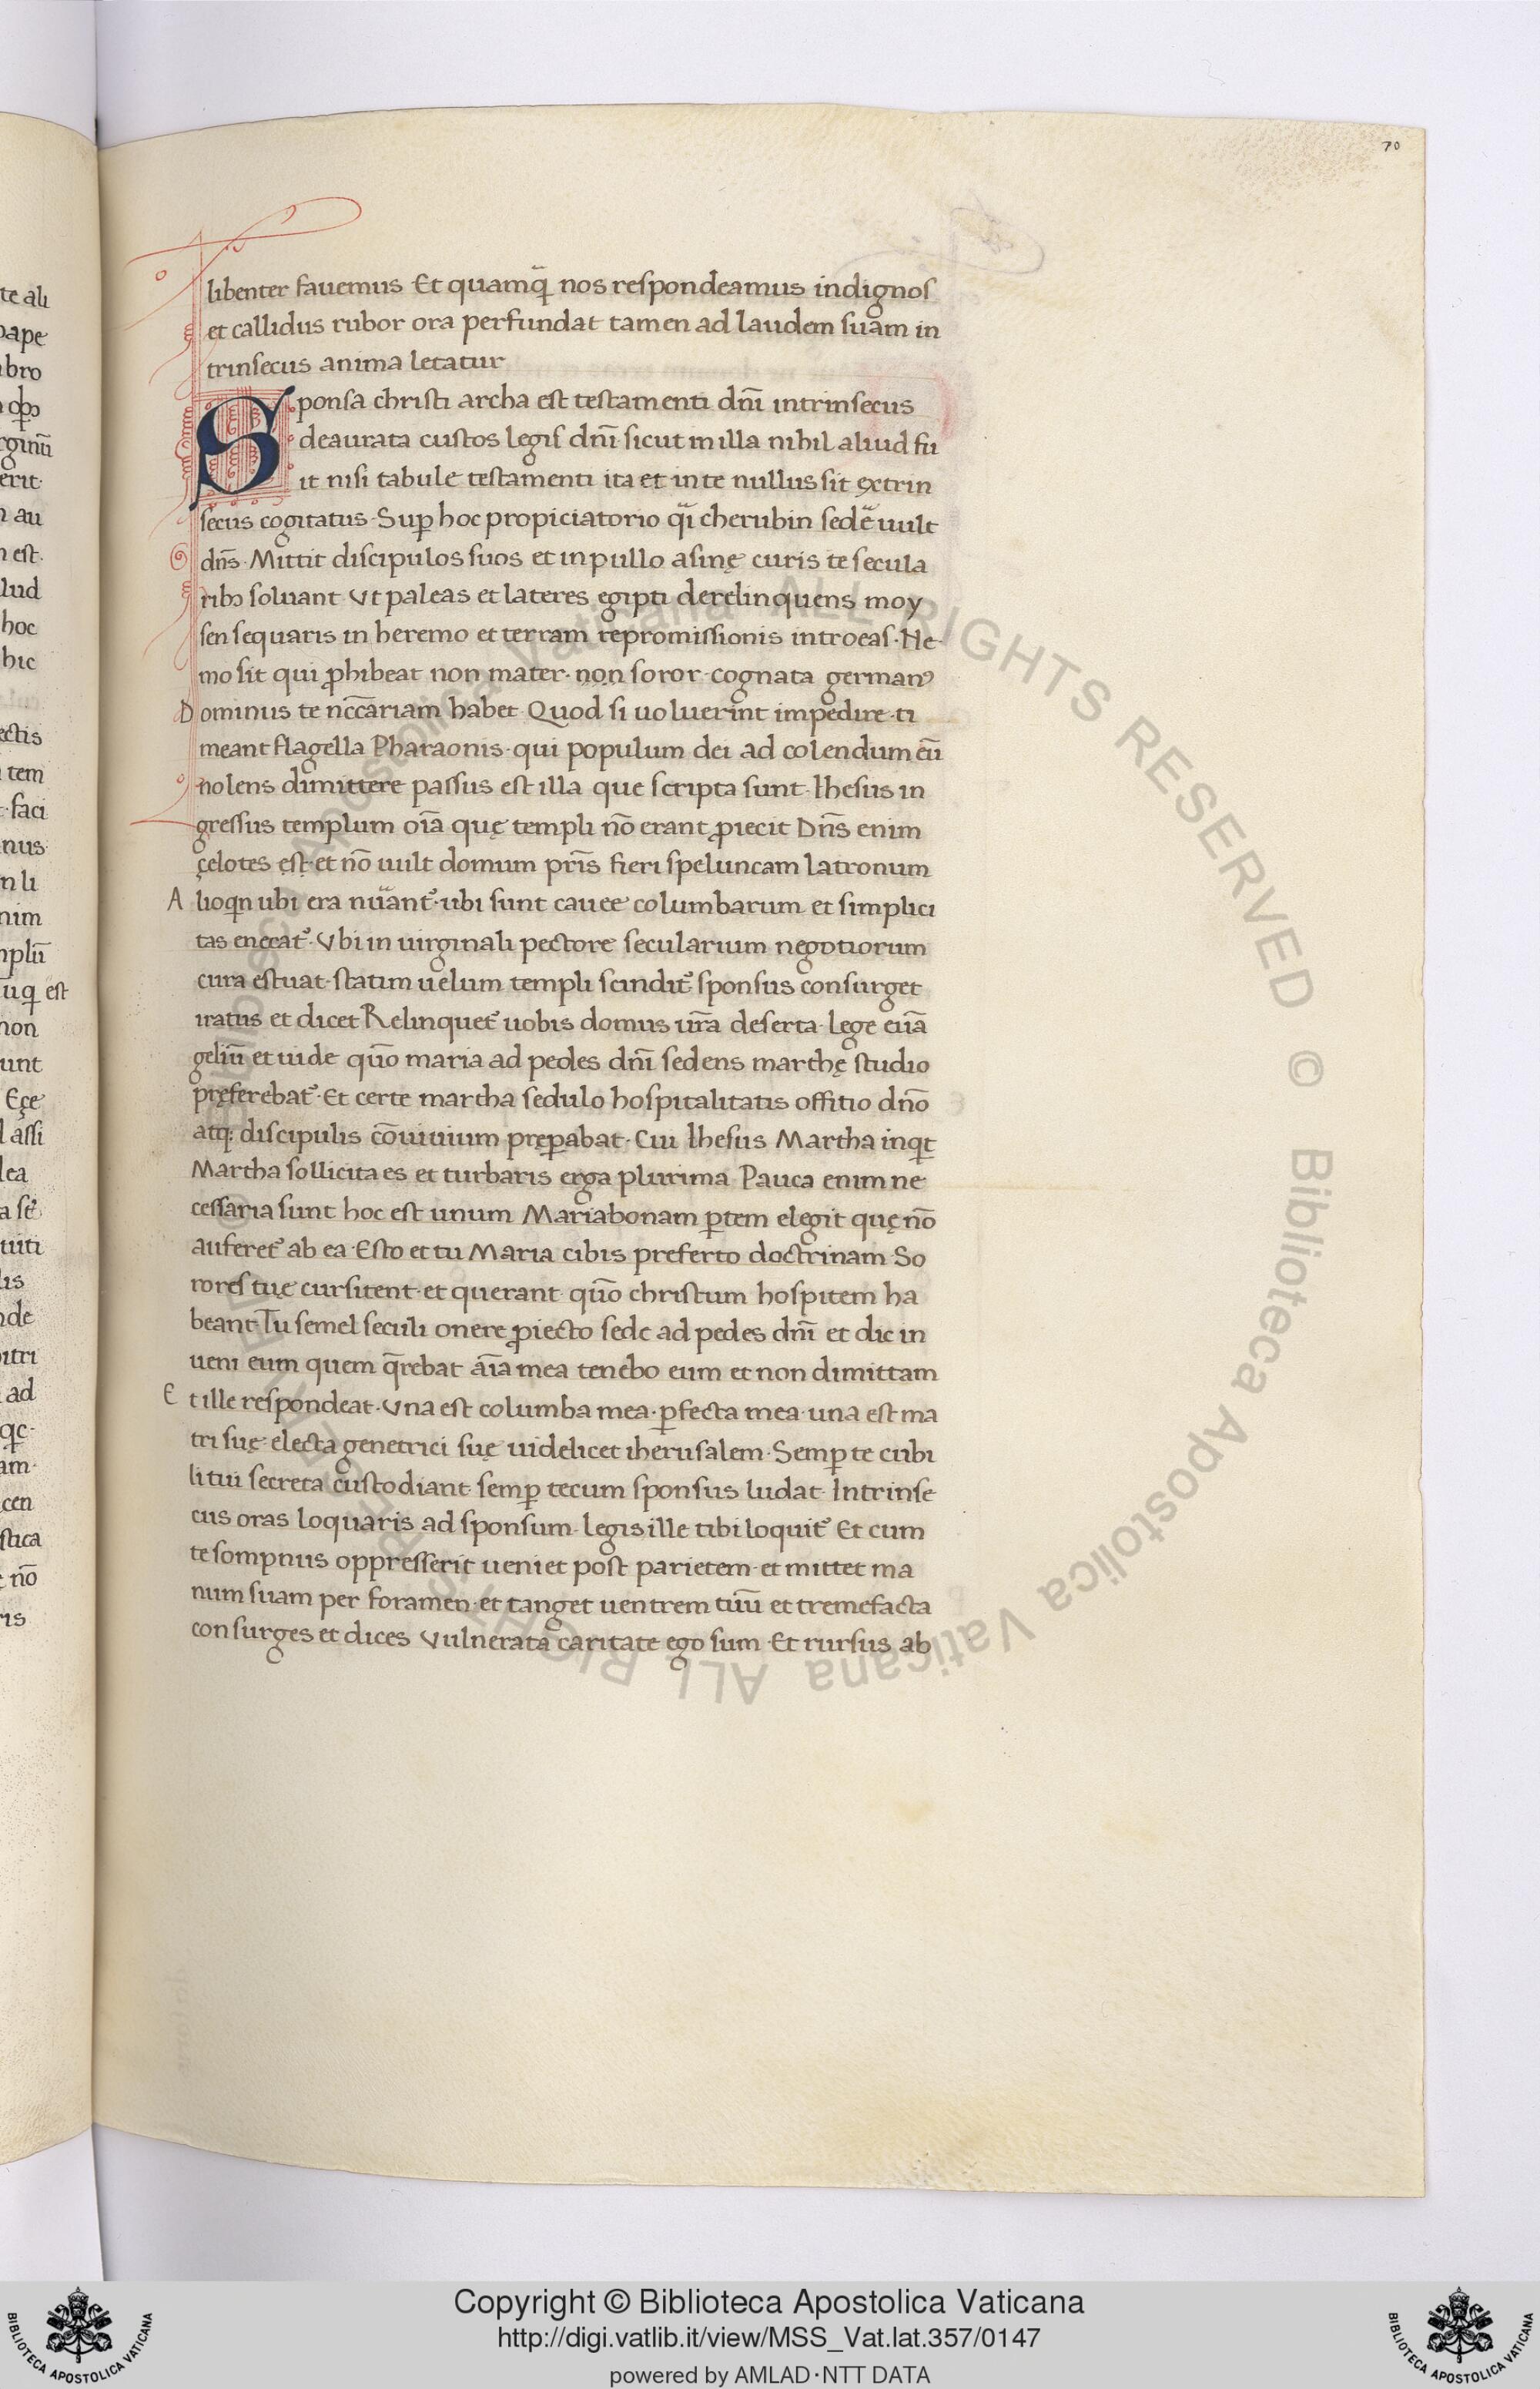 70
libenter fauemus Et quamq̃ nos respondeamus indignos
et callidus rubor ora perfundat tamen ad laudem suam in
trinsecus anima letatur
Sponsa christi archa est testamenti dñi intrinsecus
deaurata custos legis dñi sicut in illa nihil aliud fu
it nisi tabule testamenti ita et in te nullus sit extrin
secus cogitatus. Sup̱ hoc propiciatorio q̃i cherubin sedẽ uult
dñs. Mittit discipulos suos et in pullo asinę curis te secula
ribꝫ soluant Ut paleas et lateres egipti derelinquens moy
sen sequaris in heremo et terram repromissionis introeas. Ne
mo sit qui ꝓhibeat non mater. non soror cognata germanꝰ
Dominus te nc̄cāriam habet Quod si uoluerint impedire. ti
meant flagella Pharaonis. qui populum dei ad colendum eū
nolens dimittere passus est illa que scripta sunt. Ihesus in
gressus templum oīa quę templi nō erant ꝓiecit Dñs enim
çelotes est. et nō uult domum pr̄is fieri speluncam latronum
Alioqn ubi era nũant᷑. ubi sunt cauee columbarum et simplici
tas enecat᷑. Ubi in uirginali pectore secularium negotiorum
cura estuat. statim uelum templi scindit᷑ sponsus consurget
iratus et dicet Relinquet᷑ uobis domus ur̄a deserta. lege euā
geliū et uide quō maria ad pedes dñi sedens marthę studio
pręferebat᷑. Et certe martha sedulo hospitalitatis offitio dño
atq: discipulis cōuiuium pręꝑabat. Cui Ihesus Martha inqt
Martha sollicita es et turbaris erga plurima Pauca enim ne
cessaria sunt hoc est unum Maria bonam ꝑtem elegit quę nō
auferet᷑ ab ea. Esto et tu Maria cibis preferto doctrinam So
rores tuę cursitent. et querant quō christum hospitem ha
beant. Tu semel seculi onere ꝓiecto sede ad pedes dñi et dic in
ueni eum quem q̄rebat āia mea tenebo eum et non dimittam
Et ille respondeat. Una est columba mea. ꝑfecta mea. una est ma
tri suę. electa genetrici suę uidelicet iherusalem. Semꝑ te cubi
li tui secreta custodiant. semꝑ tecum sponsus ludat. Intrinse
cus oras loquaris ad sponsum. legis ille tibi loquit᷑ Et cum
te sompnus oppresserit ueniet post parietem. et mittet ma
num suam per foramen. et tanget uentrem tuū et tremefacta
consurges et dices Vulnerata caritate ego sum Et rursus ab
Copyright © Biblioteca Apostolica Vaticana
http://digi.vatlib.it/view/MSS_Vat.lat.357/0147
powered by AMLAD·NTT DATA